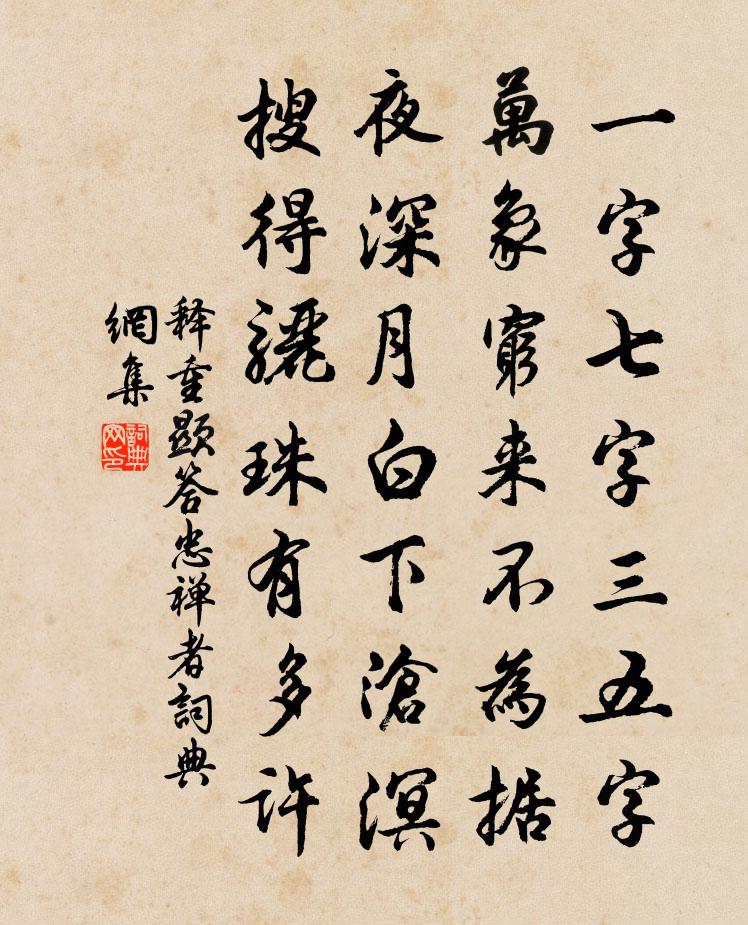 一字七字三五字
萬象窮来不為据
夜深月白下滄溟
搜得驪珠有多許
释重顯答忠禅者詞典
網集
詞典
网印